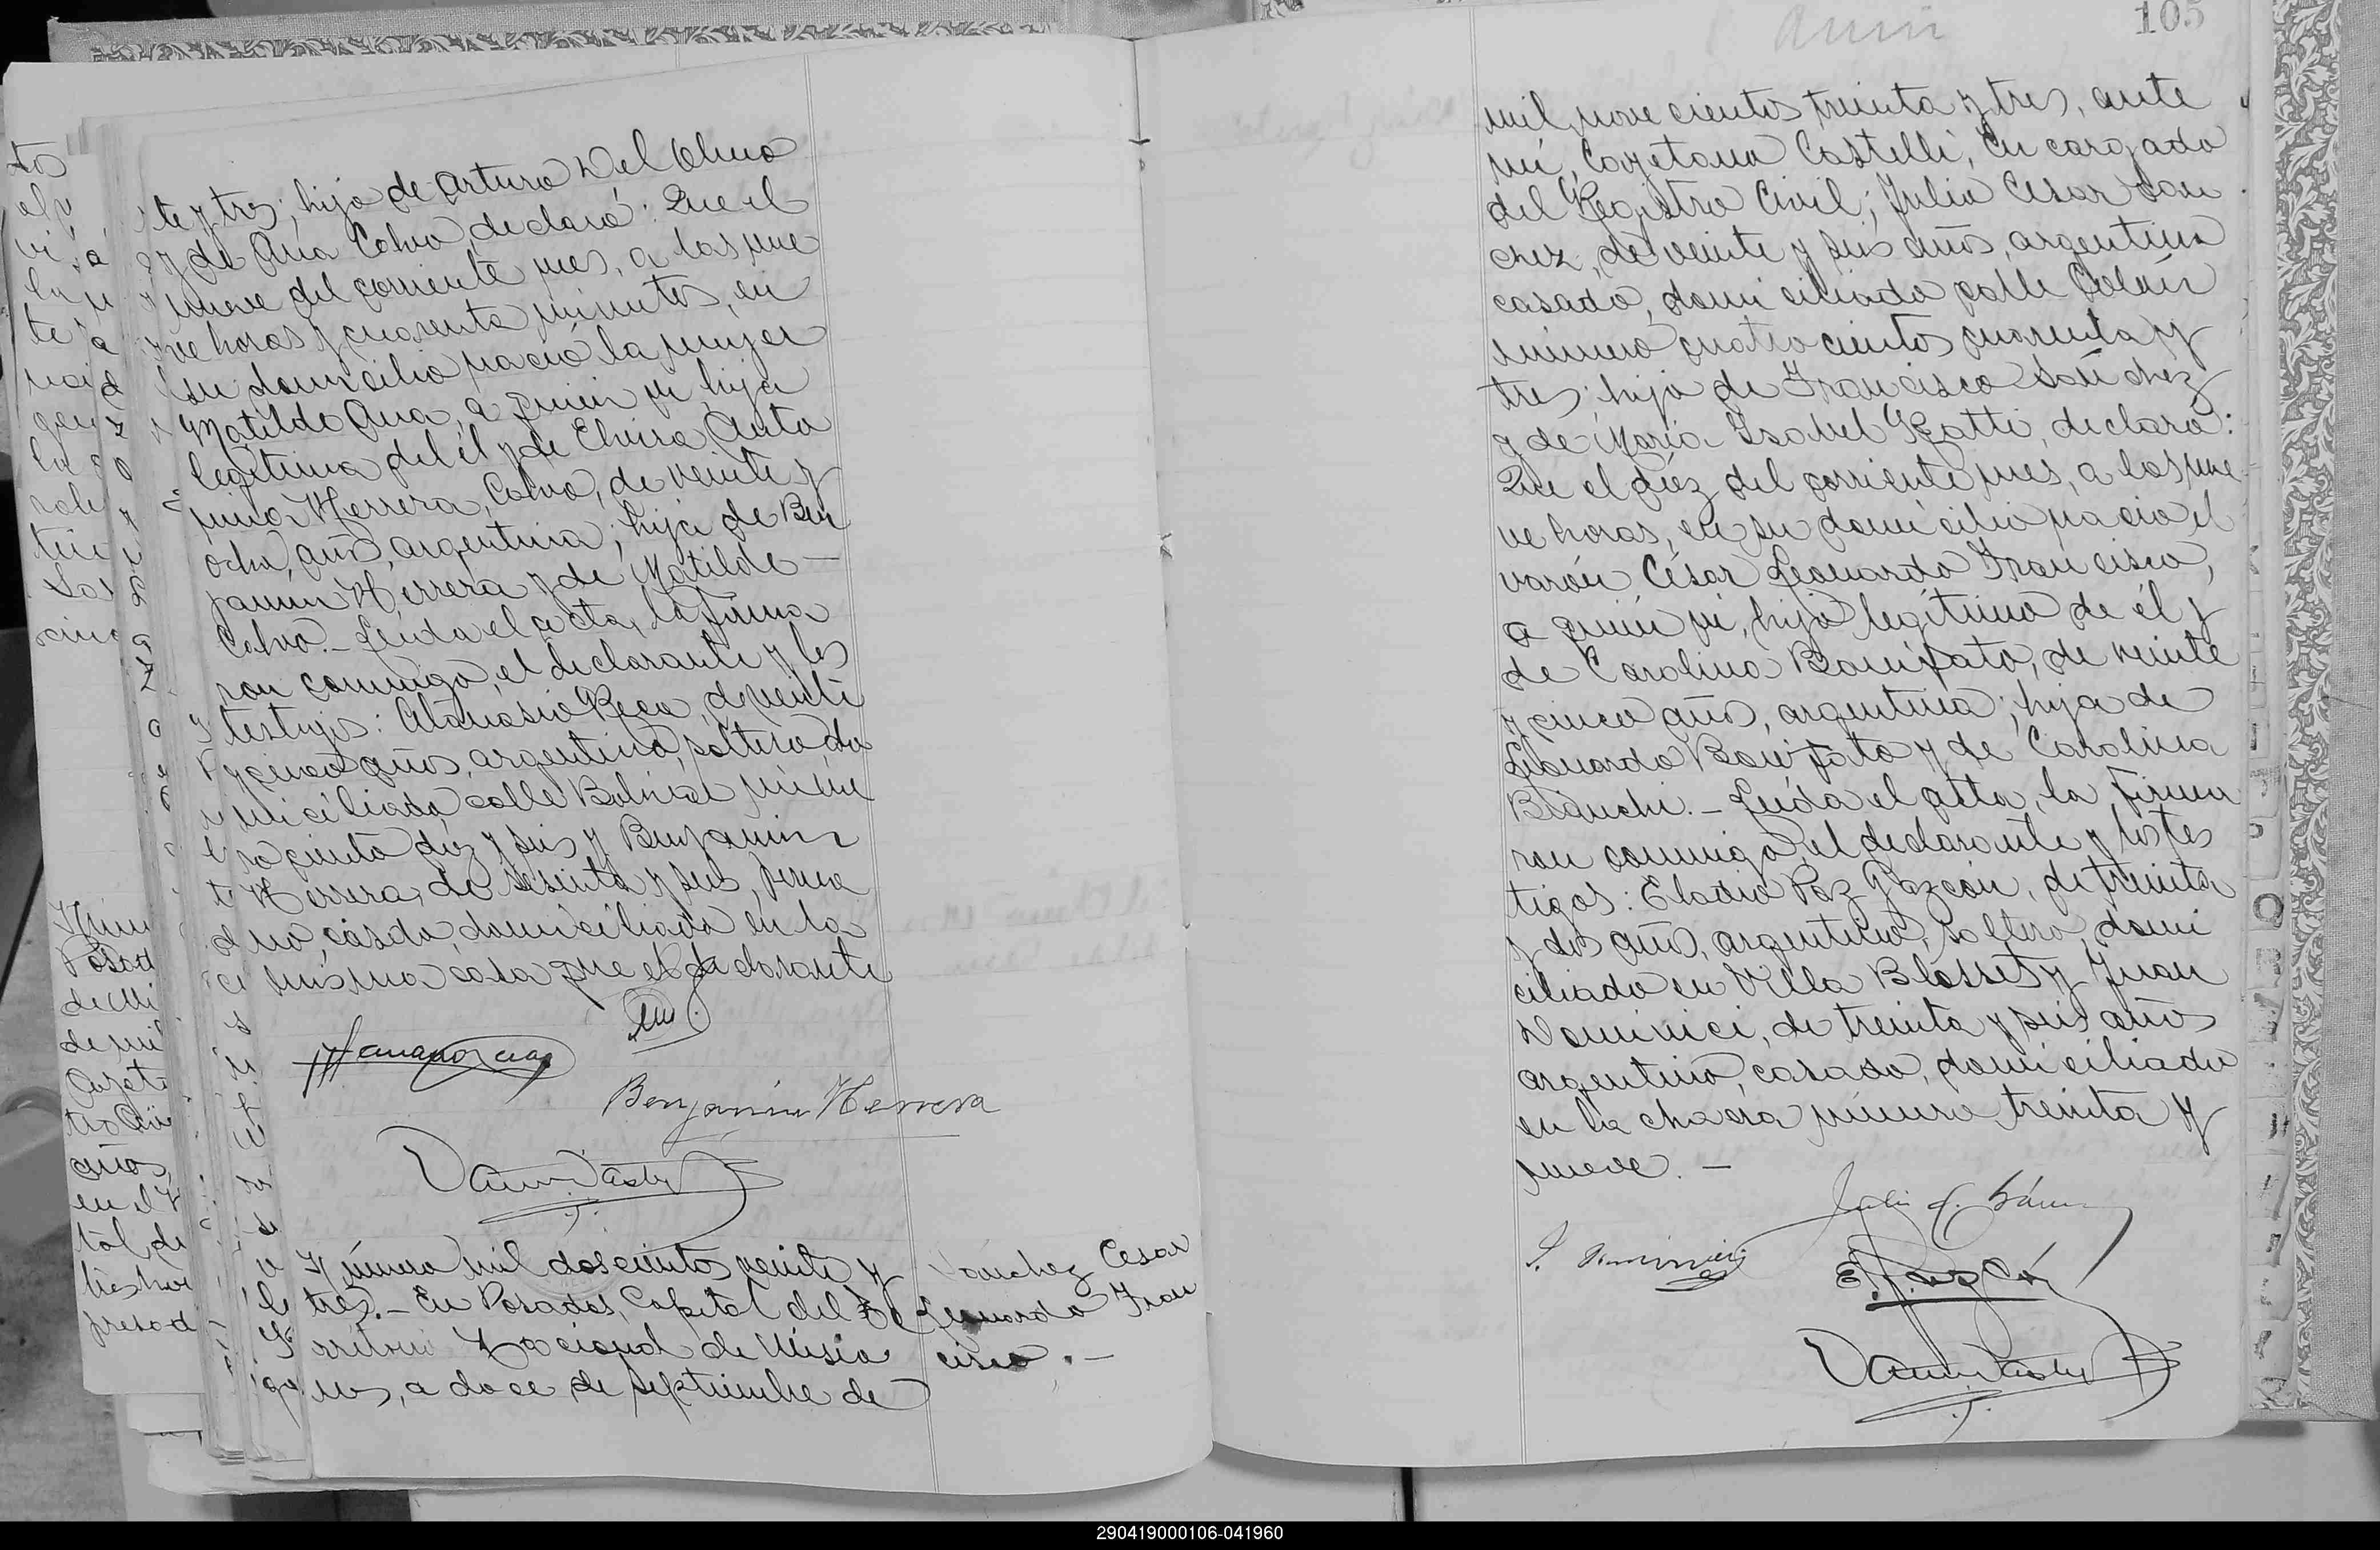 te y tres; hijo de Arturo Del Olmo
y de Ana Calvo, declaró: Que el
nueve del corriente mes, a las nue
ve horas y cuarenta minutos, en
su domicilio nació la mujer
Matilde Ana, a quien vi, hija
legítima del él y de Elvira Anto
nina Herrera Calvo, de veinte y
ocho años, argentina; hija de Ben
jamin Herrera y de Matilde —
Calvo.- Leída el acta, la firma
ron conmigo, el declarante y los
testigos: Atanasio Reca, de veinti
y cinco años, argentino, soltero, do
miciliado calle Bolivar núme
ro ciento diez y seis y Benjamin
Herrera, de sesenta y seis, perua
no, casado, domiciliado en la
misma casa que el declarante
Benjamin Herrera
Número mil doscientos veinte y
tres.- En Posadas, Capital del Te
rritorio Nacional de Misio
nes, a doce de septiembre de
Sanchez Cesar
Leonardo Fran
cisco.-
105
mil novecientos treinta y tres, ante
mí, Cayetano Castelli, Encargado
del Registro Civil; Julio Cesar San
chez, de veinte y seis años, argentino
casado, domiciliado calle Colón
número cuatrocientos cuarenta y
tres; hijo de Francisco Sanchez
y de María Isabel Ratti, declaró:
Que el diez del corriente mes, a las nue
ve horas, en su domicilio nació el
varón César Leonardo Francisco,
a quien vi, hijo legítimo de él y
de Carolina Bonifato, de veinte
y cinco años, argentina; hija de
Leonardo Bonifato y de Carolina
Bianchi.- Leída el acta, la firma
ron conmigo, el declarante y los tes
tigos: Eladio Paz Gazcón, de treinta
y dos años, argentino, soltero, domi
ciliado en Villa Blosset y Juan
Dominici, de treinta y seis años
argentino, casado, domiciliado
en la chacra número treinta y
nueve. —
Julio C. Sánchez
J. Dominici
290419000106-041960